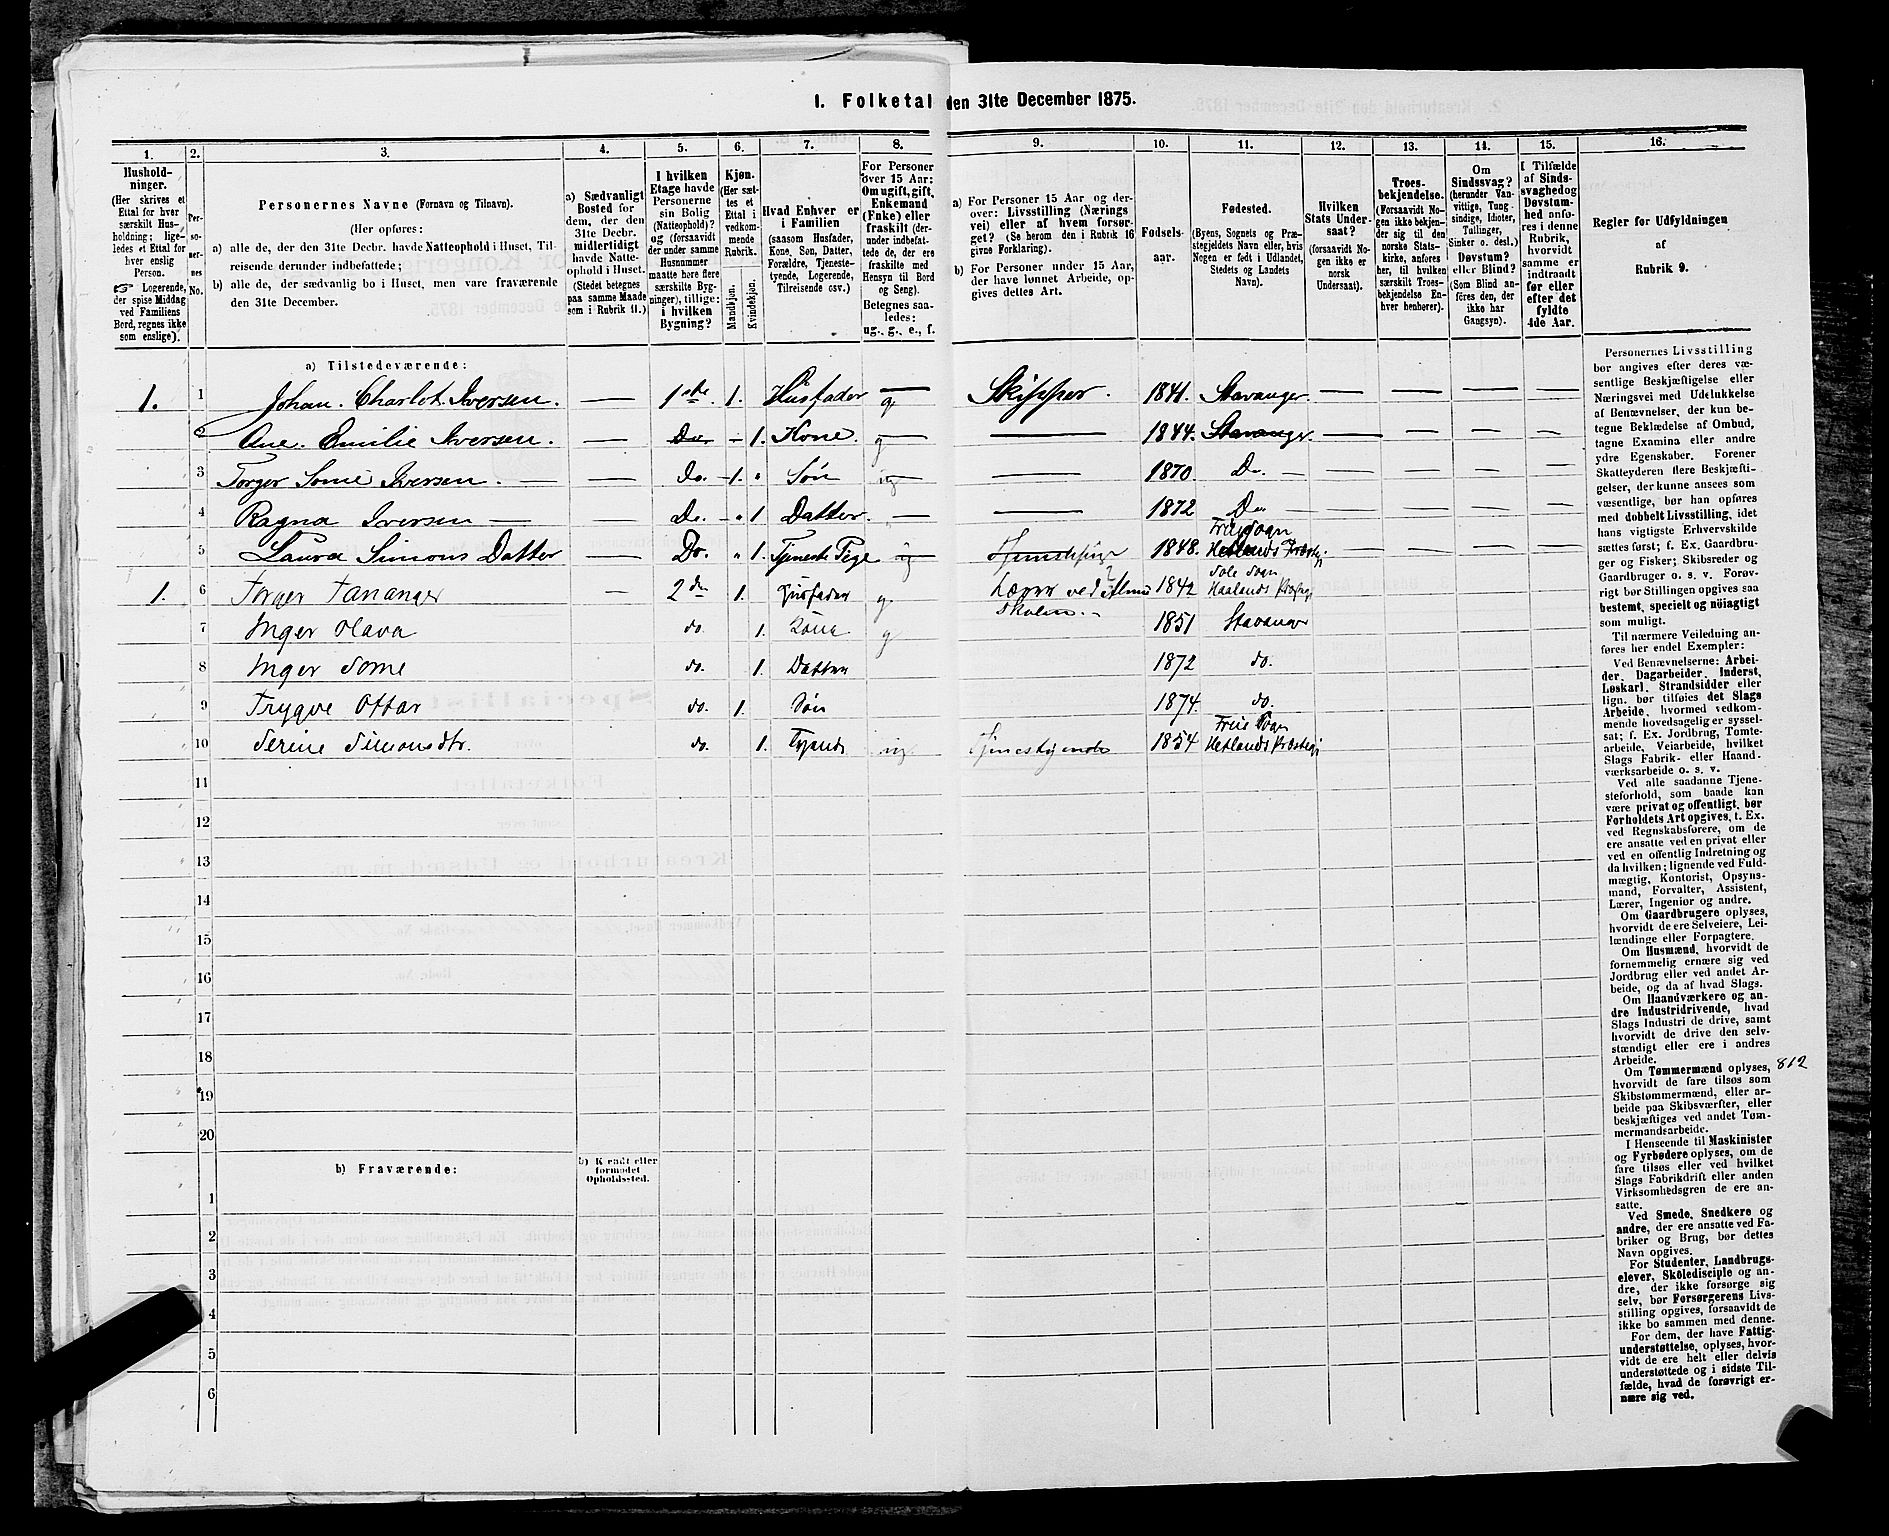 I. Folketal den 31te December 1875.
1. 2. 3. 4. 5. 6. 7. 8. 9. 10. 11. 12. 13. 14. 15. 16.
Husholdninger.
(Her skrives et Ettal for hver særskilt Husholdning; ligeledes et Ettal for hver enslig Person.
☞ Logerende, der spise Middag ved Familiens Bord, regnes ikke som enslige).
Personernes No.
Personernes Navne (Fornavn og Tilnavn).
(Her opføres:
a) alle de, der den 31te Decbr. havde Natteophold i Huset, Tilreisende derunder indbefattede;
b) alle de, der sædvanlig bo i Huset, men vare fraværende den 31te December.
a) Sædvanligt Bosted for dem, der den 31te Decbr. midlertidigt havde Natteophold i Huset. (Stedet betegnes paa samme Maade som i Rubrik 11.)
I hvilken Etage havde Personerne sin Bolig (Natteophold)? og (forsaavidt der under samme Husnummer maatte høre flere særskilte Bygninger), tillige: i hvilken Bygning?
Kjøn. (Her sættes et Ettal i vedkommende Rubrik.
Mandkjøn. Kvindekjøn.
Hvad Enhver er i Familien (saasom Husfader, Kone, Søn, Datter, Forældre, Tjenestetyende, Logerende, Tilreisende osv.)
For Personer over 15 Aar: Om ugift, gift, Enkemand (Enke) eller fraskilt (derunder indbefattede de, der ere fraskilte med Hensyn til Bord og Seng). Betegnes saaledes: ug., g., e., f.
a) For Personer 15 Aar og derover: Livsstilling (Næringsvei) eller af hvem forsørget? (Se herom den i Rubrik 16 givne Forklaring).
b) For Personer under 15 Aar, der have lønnet Arbeide, opgives dettes Art.
Fødselsaar.
Fødested. (Byens, Sognets og Præstegjeldets Navn eller, hvis Nogen er født i Udlandet, Stedets og Landets Navn).
Hvilken Stats Undersaat? (forsaavidt Nogen ikke er norsk Undersaat).
Troesbekjendelse. (Forsaavidt Nogen ikke bekjender sig til den norske Statskirke, anføres her, til hvilken særskilt Troesbekjendelse Enhver henhører).
Om Sindssvag? (herunder Vanvittige, Tungsindige, Idioter, Tullinger, Sinker o. desl.) Døvstum? eller Blind? (Som Blind anføres den, der ikke har Gangsyn).
I Tilfælde af Sindssvaghed og Døvstumhed anføres i denne Rubrik, hvorvidt samme er indtraadt før eller efter det fyldte 4de Aar.
Regler for Udfyldningen af Rubrik 9.
a) Tilstedeværende:
1. 1 Johan. Charlot. Iversen. — 1ste 1. Husfader g Skipper 1841. Stavanger — — — —
2 Ane. Emilie Iversen. — Do — 1. Kone. g — 1844. Stavanger. — — — —
3 Torger Somé Iversen. — — Do. 1. " Søn ug — 1870. Do. — — — —
4 Ragna Iversen — — Do. " 1 Datter. — — 1872 Do — — — —
5 Laura Simons Datter — Do. " 1. Tjeneste Pige ug 1848. Sogn Hetlands Præstegj. — — — —
1. 6 Torger Tananger — 2den 1. Husfader g. Lærer ved Skolen. — 1842 Sole Sogn Haalands Præstegj
7 Inger Olava do. 1. Kone g 1851 Stavanger
8 Inger Some do. 1. Datter 1872 do.
9 Trygve Ottar do. 1. Søn 1874. do.
10 Serine Simonsdtr. do. 1. Tyende ug. Tjenestyende 1854 Sogn Hetlands Præstegj
11
12
13
14
15
16
17
18
19
20
b) Fraværende:
b) Kjendt eller formodet Opholdssted.
1
2
3
4
5
6
Personernes Livsstilling bør angives efter deres væsentlige Beskjæftigelse eller Næringsvei med Udelukkelse af Benævnelser, der kun betegne Beklædelse af Ombud, tagne Examina eller andre ydre Egenskaber. Forener Skatteyderen flere Beskjæftigelser, der kunne ansees som væsentlige, bør han opføres med dobbelt Livsstilling, idet hans vigtigste Erhvervskilde sættes først; f. Ex. Gaardbruger og Fisker; Skibsreder og Gaardbruger o. s. v. Forøvrigt bør Stillingen opgives saa bestemt, specielt og nöiagtigt som muligt.
Til nærmere Veiledning anføres her endel Exempler:
Ved Benævnelserne: Arbeider, Dagarbeider, Inderst, Løskarl, Strandsidder eller lign. bør tilføies det Slags Arbeide, hvormed vedkommende hovedsagelig er sysselsat; f. Ex. Jordbrug, Tomtearbeide, Veiarbeide, hvilket Slags Fabrik- eller Haandværksarbeide o. s. v.
Ved alle saadanne Tjenesteforhold, som baade kan være privat og offentligt, bør Forholdets Art opgives, t. Ex. ved Regnskabsførere, om de ere ansatte ved en privat eller ved en offentlig Indretning og da hvilken; lignende ved Fuldmægtig, Kontorist, Opsynsmand, Forvalter, Assistent, Lærer, Ingeniør og andre.
Om Gaardbrugere oplyses, hvorvidt de ere Selveiere, Leilændinge eller Forpagtere.
Om Husmænd, hvorvidt de fornemmelig ernære sig ved Jordbrug eller ved andet Arbeide, og da af hvad Slags.
Om Haandværkere og andre Industridrivende, hvad Slags Industri de drive, samt hvorvidt de drive den selvstændigt eller ere i andres Arbeide.
Om Tømmermænd oplyses, hvorvidt de fare tilsøs som Skibstømmermænd, eller arbeide paa Skibsværfter, eller beskjæftiges ved andet Tømmermandsarbeide.
I Henseende til Maskinister og Fyrbødere oplyses, om de fare tilsøs eller ved hvilket Slags Fabrikdrift eller anden Virksomhedsgren de ere ansatte.
Ved Smede, Snedkere og andre, der ere ansatte ved Fabriker og Brug, bør dettes Navn opgives.
For Studenter, Landbrugselever, Skoledisciple og andre, der ikke forsørge sig selv, bør Forsørgerens Livsstilling opgives, forsaavidt de ikke bo sammen med denne.
For dem, der have Fattigunderstøttelse, oplyses, hvorvidt de ere helt eller delvis understøttede og i sidste Tilfælde, hvad de forøvrigt ernære sig ved.
812